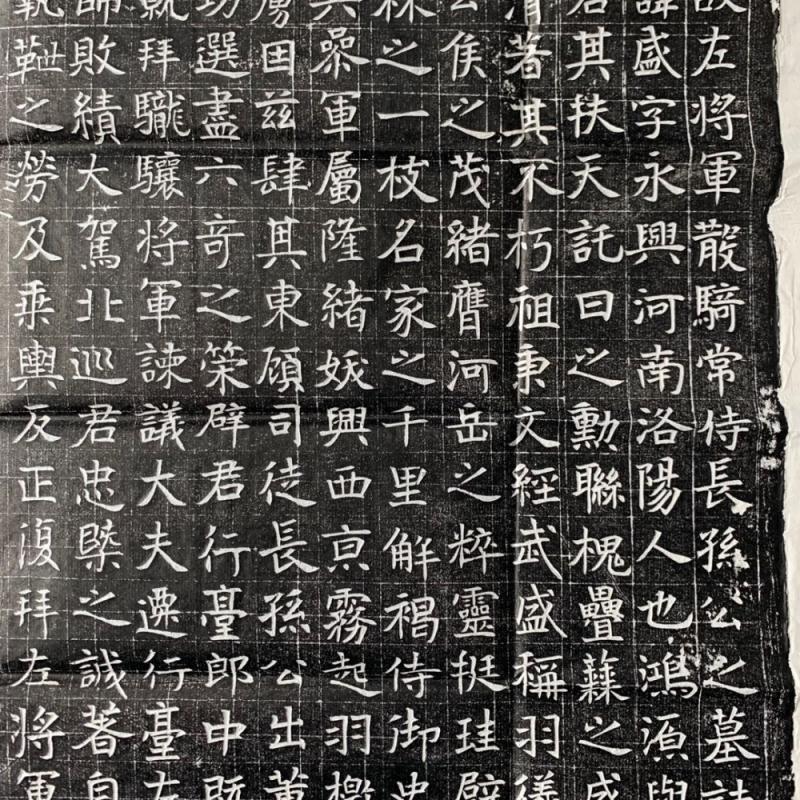 故左將軍散騎常侍長孫公之墓誌
諱盛字永興河南洛陽人也鴻源與
君其秩天託日之勳聯槐疊蕀之盛
著其不朽祖康文經武盛稱羽儀
公侯之茂緒膺河岳之粹靈挺珪璧
林之一枝名家之千里解褐侍御史
興喿軍屬隆緒妖興西京霧起羽檄
虜田茲肆其東顧司徒長孫公出董
功選盡六奇之策辟君行臺郎中既
就拜驣驤將軍諫議大夫遷行臺左
師敗績大駕北巡君忠槩之誠著自
執靶之勞及乘輿反正復拜左將軍